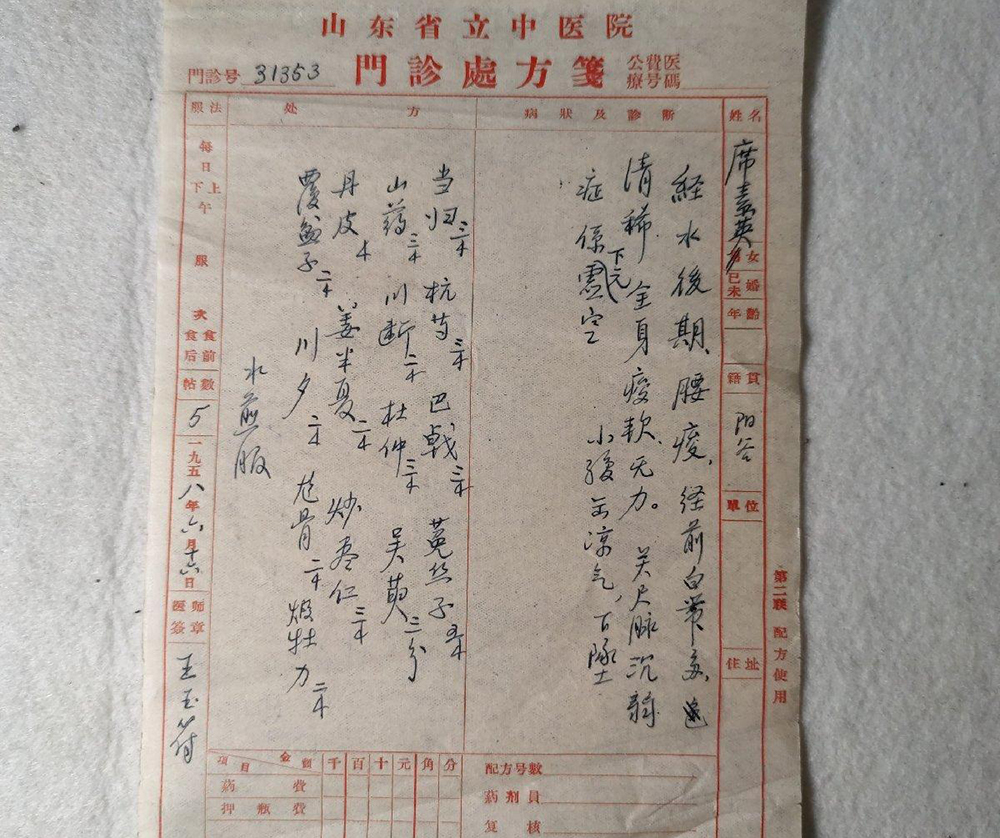 山东省立中医院
門診号 31353
門診處方箋
公費医療号碼
姓名
席素英
男女
已未婚
年齡
籍貫
阳谷
單位
住址
病狀及診斷
経水後期、腰痠、经前白带多、色
清稀.全身痠软无力。关尺脉沉弱
症係下元虚空
小腹寒凉气,下墜
处方
当归三k 杭芍三k 巴戟三k 菟丝子五k
山药三k 川断二k 杜仲三k 吴萸二分
丹皮k 姜半夏二k 炒枣仁三k
覆盆子二k 川夕二k 尨骨二k 煅牡力二k
水煎服
服法
每日上下午服
次
食前食后
帖數
5
一九五八年六月十六日
医師簽章
王玉符
第二联 配方使用
項目 金額 千百十元角分
葯費
押瓶費
配方号數
葯剂員
复核